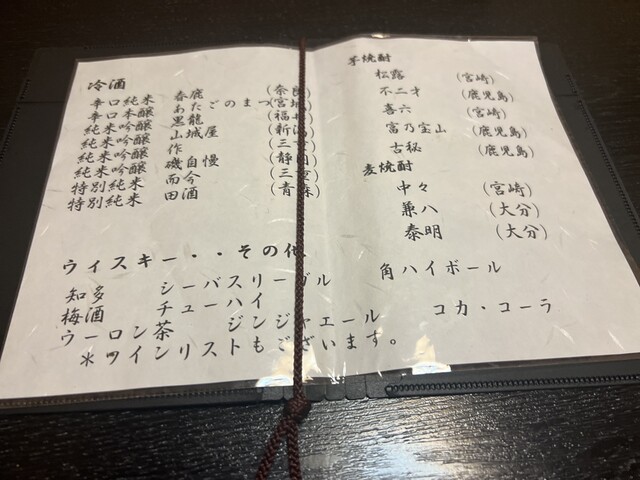 冷酒
辛口純米 春鹿 (奈良)
あたごのまつ (宮城)
純米吟醸 黒龍 (福井)
純米吟醸 山城屋 (新潟)
純米吟醸 作 (三重)
純米吟醸 磯自慢 (静岡)
特別純米 而今 (三重)
特別純米 田酒 (青森)
ウィスキー・・その他
知多 シーバスリーガル 角ハイボール
梅酒 チューハイ
ウーロン茶 ジンジャエール コカ・コーラ
※ワインリストもございます。
芋焼酎
松露 (宮崎)
不二才 (鹿児島)
喜六 (宮崎)
富乃宝山 (鹿児島)
古秘 (鹿児島)
麦焼酎
中々 (宮崎)
兼八 (大分)
泰明 (大分)